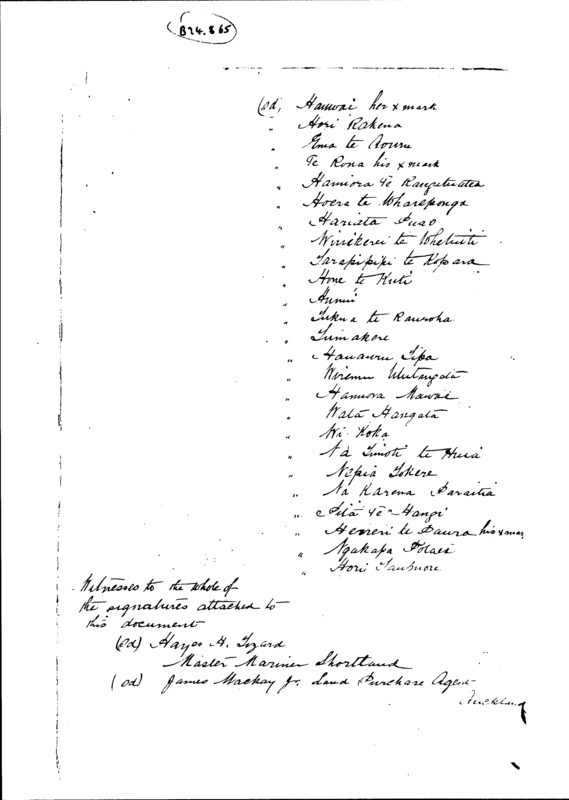 B24.865
(sd) Hamwai her x mark
" Hori Rakena
" Ema te Aouru
" Te Rona his x mark
" Hamiora te Rangituatea
" Hoera te Whareponga
" Hariata
" Wirikerei te Whetuiti
" Tarapipipi te Kopara
" Hone te Kuti
"
" Tukua te Rauroha
" Tumakere
" Hauauru Tipa
" Wiremu
" Hamuora Mawai
" Wata Hangata
" Wi Koka
" Na Timoti te Huia
" Nepia Tokere
" Na Karena Paraitia
" Pita te Hangi
" Heneri te Paura his x mar
" Ngakapa
" Hori Taumore
Witnesses to the whole of
the signatures attached to
this document
(sd) Hayes H. Tizard
Master Mariner Shortland
(sd) James Mackay Jr. Land Purchase Agent
Auckland